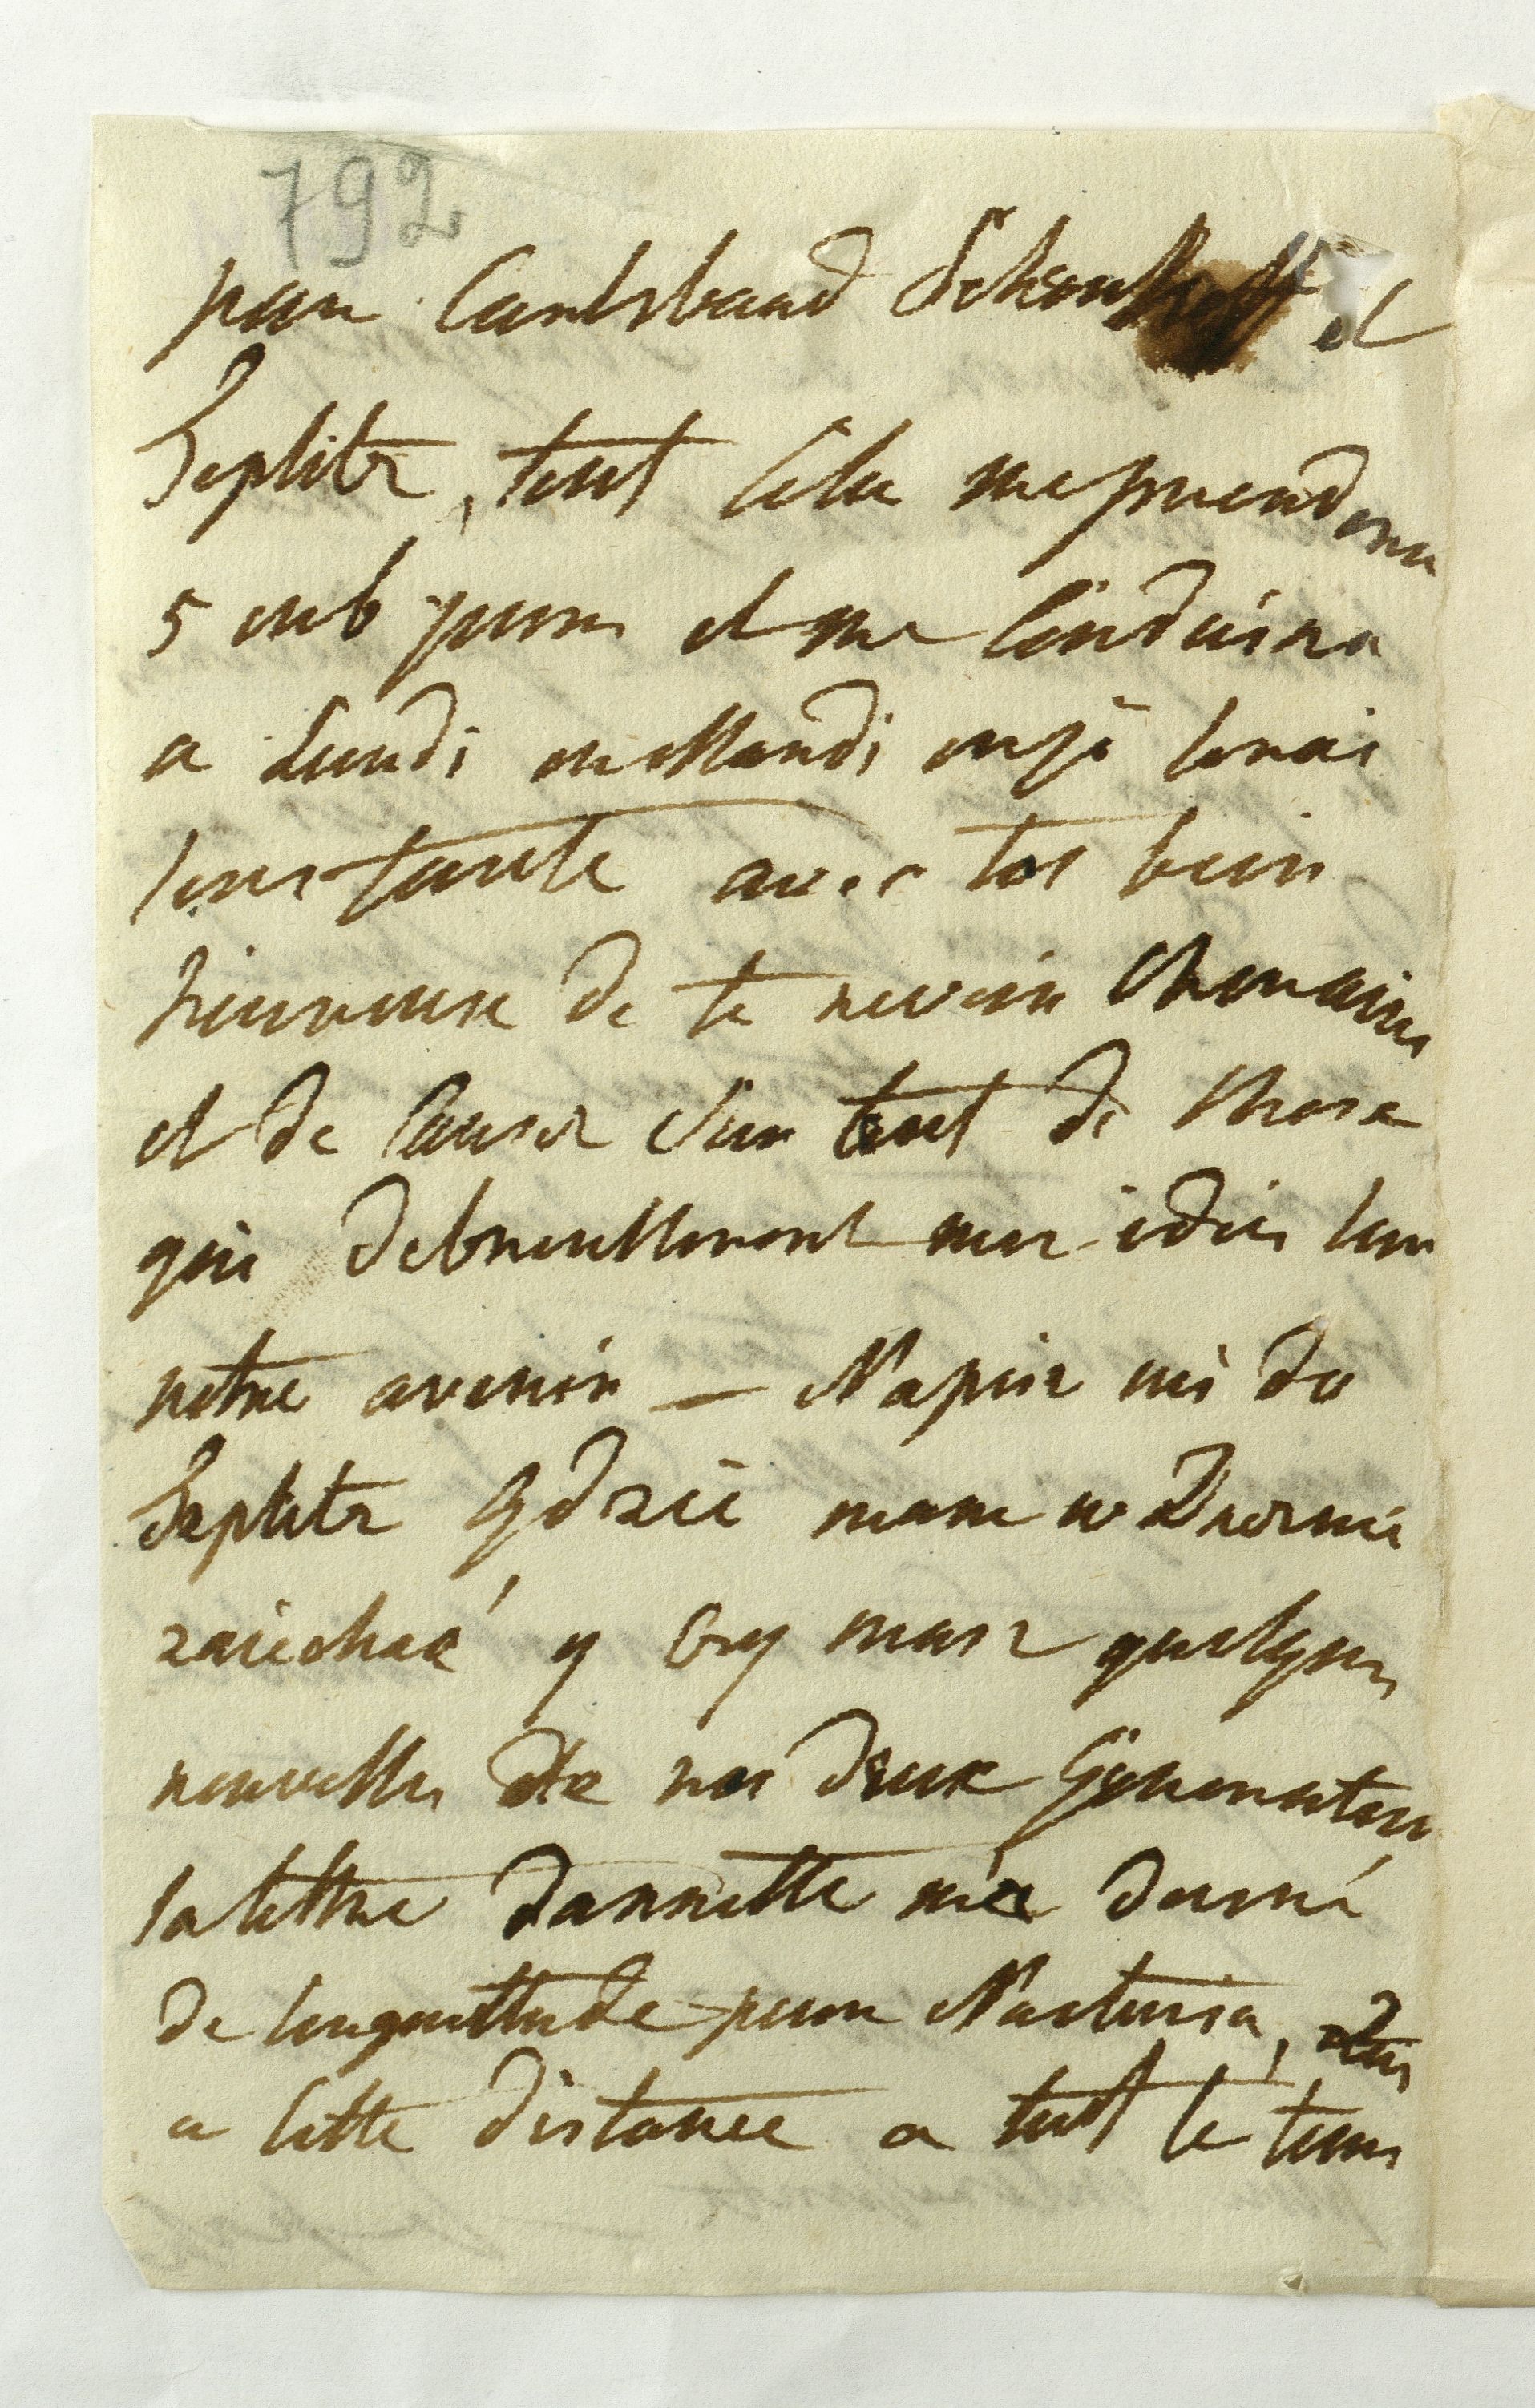 792
par Carlsbaad et
Teplitz, tout cela me prendera
5 ou 6 jours et me Conduira
a Lundi ou Mardi ou je serai
avec toi bien
heureuse de te revoir
et de Causer sur tout de chose
qui debroullieront mes idées sur
notre avenir — Napisz mi do
Teplitz Gdzie mam w Dreznie
zaiechać y czy masz quelques
nouvelles de nos deux Generateurs
la lettre d'annette m'a donné
de linquiettude pour Nastusia,
a cette distance a tout le tems